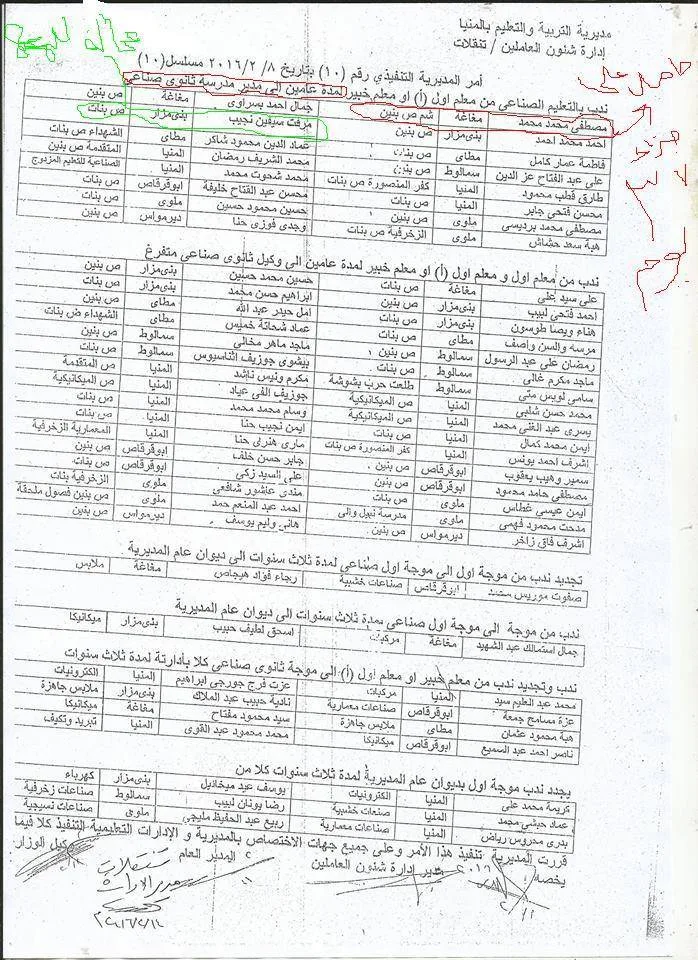 مديرية التربية والتعليم بالمنيا
إدارة شئون العاملين / تنقلات
أمر المديرية التنفيذي رقم (١٠) بتاريخ ٨ /٢ /٢٠١٦ مسلسل (١٠)
ندب بالتعليم الصناعي من معلم اول (أ) او معلم خبير لمدة عامين الى مدير مدرسه ثانوى صناعى
مصطفى محمد محمد مغاغة شم ص بنين جمال احمد بسراوى مغاغة ص بنين
احمد محمد احمد بنى مزار ص بنين مرفت سيفين نجيب بنى مزار ص بنات
فاطمة عمار كامل مطاى ص بنات عماد الدين محمود شاكر مطاى الشهداء ص بنات
على عبد الفتاح عز الدين سمالوط ص بنات محمد الشريف رمضان المنيا المتقدمة ص بنين
طارق قطب محمود المنيا كفر المنصورة ص بنات محمد شحوت محمد المنيا الصناعية للتعليم المزدوج
محسن فتحى جابر المنيا ص بنين محسن عبد الفتاح خليفة ابوقرقاص ص بنات
مصطفى محمد برديسى ملوى ص بنين حسين محمود حسين ملوى ص بنات
هبة سعد حشاش ملوى الزخرفية ص بنات وجدى فوزى حنا ديرمواس ص بنين
ندب من معلم اول و معلم اول (أ) او معلم خبير لمدة عامين الى وكيل ثانوى صناعى متفرغ
على سيد على مغاغة ص بنات حسين محمد حسين بنى مزار ص بنين
احمد فتحى لبيب بنى مزار ص بنين ابراهيم حسن محمد بنى مزار ص بنات
هناء ويصا طوسون مطاى ص بنين امل حيدر عبد الله مطاى ص بنين
مرسه والسن واصف مطاى ص بنات عماد شحاتة خميس مطاى الشهداء ص بنات
رمضان على عبد الرسول سمالوط ص بنين ماجد ماهر مخالى سمالوط ص بنين
ماجد مكرم غالى سمالوط ص بنات بيشوى جوزيف اثناسيوس سمالوط ص بنات
سامى لويس متى سمالوط طلعت حرب بشوشة مكرم ونيس ناشد المنيا المتقدمة
محمد حسن شلبى المنيا ص الميكانيكية جوزيف الفى عياد المنيا ص الميكانيكية
يسرى عبد الغنى محمد المنيا ص الميكانيكية وسام محمد محمد المنيا ص بنات
ايمن محمد كمال المنيا ص بنات ايمن نجيب حنا المنيا المعمارية الزخرفية
اشرف احمد يونس المنيا كفر المنصورة ص بنات مارى هنرى حنا ابوقرقاص ص بنين
سمير وهيب يعقوب ابوقرقاص ص بنين جابر حسن خلف ابوقرقاص ص بنات
مصطفى حامد محمود ابوقرقاص ص بنين على السيد زكى ملوى الزخرفية بنات
ايمن عيسى غطاس ملوى ص بنات مندى عاشور شافعى ملوى ص بنين فصول ملحقة
مدحت محمود فهمى ملوى مدرسة نبيل والى احمد عبد المنعم حمد ديرمواس ص بنين
اشرف فاق زاخر ديرمواس ص بنين هانى وليم يوسف
تجديد ندب من موجة اول الى موجة اول صناعى لمدة ثلاث سنوات الى ديوان عام المديرية
صفوت موريس ابوقرقاص صناعات خشبية رجاء فؤاد مغاغة ملابس
ندب من موجة الى موجة اول صناعى لمدة ثلاث سنوات الى ديوان عام المديرية
جمال استمالك عبد الشهيد مغاغة مركبات اسحق لطيف حبيب بنى مزار ميكانيكا
ندب وتجديد ندب من معلم خبير او معلم اول (أ) الى موجة ثانوى صناعى كلا بأدارتة لمدة ثلاث سنوات
محمد عبد العليم سيد المنيا مركبات عزت فرج جورجى ابراهيم المنيا الكترونيات
عزة مسامح جمعة ابوقرقاص صناعات معمارية نادية حبيب عبد الملاك بنى مزار ملابس جاهزة
هبة محمود عثمان مطاى ملابس جاهزة سيد محمود مفتاح مغاغة ميكانيكا
ناصر احمد عبد السميع ابوقرقاص ميكانيكا محمد محمود عبد القوى المنيا تبريد وتكيف
يجدد ندب موجة اول بديوان عام المديرية لمدة ثلاث سنوات كلا من
كريمة محمد على المنيا الكترونيات يوسف عيد ميخائيل بنى مزار كهرباء
عماد حبشى محمد المنيا صنعات خشبية رضا يونان لبيب سمالوط صناعات زخرفية
بدرى محروس رياض المنيا صناعات معمارية ربيع عبد الحفيظ مليجى ملوى صناعات نسيجية
قررت المديرية تنفيذ هذا الأمر وعلى جميع جهات الاختصاص بالمديرية و الإدارات التعليمية التنفيذ كلا فيما
يخصه
مدير إدارة شئون العاملين
المدير العام
وكيل الوزارة